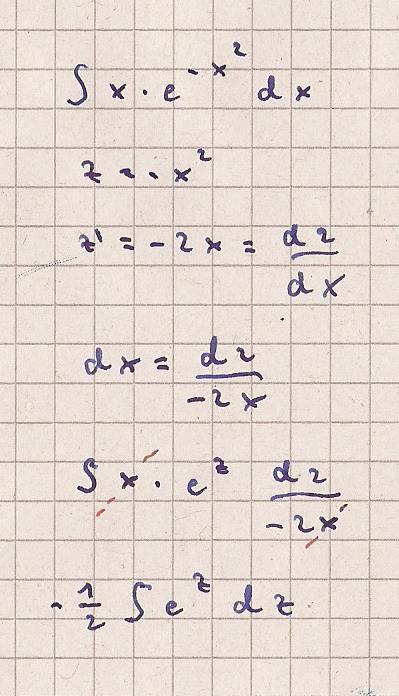 ∫ x · e^{-x^2} dx
z = -x^2
z' = -2x = dz/dx
dx = dz/-2x
∫ x · e^z dz/-2x
-1/2 ∫ e^z dz